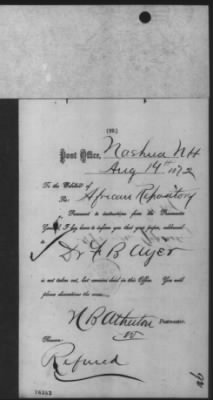 (22.)
Post Office, Nashua N H
Aug 14th 1872
To the Publisher of
The African Repository
Pursuant to instructions from the Postmaster
General, I beg leave to inform you that your paper, addressed
to
Dr F B Ayer
is not taken out, but remains dead in this Office. You will
please discontinue the same.
N B Atherton Postmaster.
Reason:
Refused